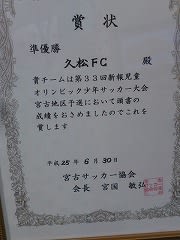 賞状
準優勝
久松FC 殿
貴チームは第33回新報児童
オリンピック少年サッカー大会
宮古地予選において頭書の
成績をおさめましたのでこれを
賞します
平成25年6月30日
宮古サッカー協会
会長 宮国 敏弘